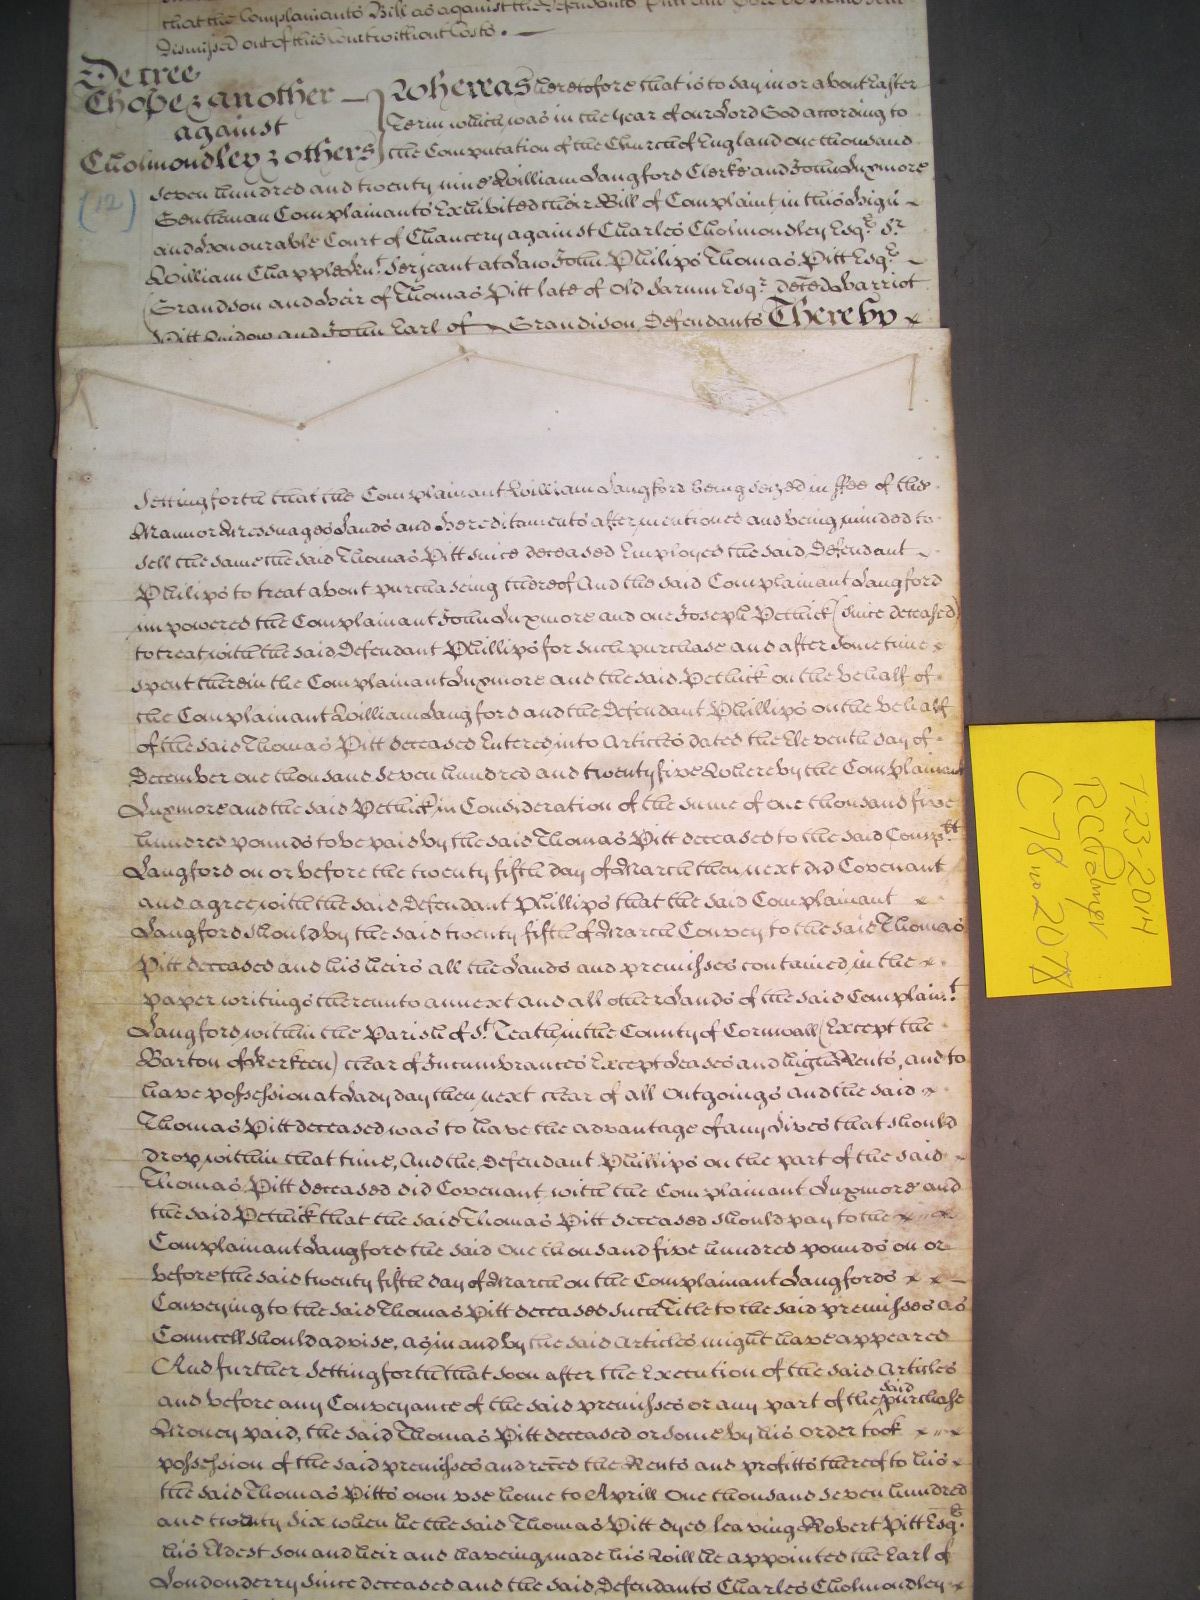 that the Complainants Bill as against the Defendants Pitt and
Dismissed out of this Court without Costs.
Decree
Chope & another
against
Cholmondley & others
(12)
Whereas heretofore that is to day in or about Easter
Term which was in the year of our Lord God according to
the Computation of the Church of England one thousand
Seven hundred and twenty nine William Langford Clerke and John Luxmore
Gentleman Complainants Exhibited their Bill of Complaint in this High
and Honourable Court of Chancery against Charles Cholmondley Esqr. Sr.
William Chapple Knt. Serjeant at Law John Philips Thomas Pitt Esqr.
Grandson and Heir of Thomas Pitt late of Old Sarum Esqr. deced Harriot
Pitt Widow and John Earl of Grandison Defendants Thereby
Setting forth that the Complainant William Langford being seized in ffee of the
Mannor Messuages Lands and Hereditaments after mentioned and being minded to
sell the same the said Thomas Pitt since deceased Employed the said Defendant
Philips to treat about purchaseing thereof And the said Complainant Langford
impowered the Complainant John Luxmore and one Joseph Pethick (since deceased)
to treat with the said Defendant Phillips for such purchase and after some time
spent therein the Complainant Luxmore and the said Pethick on the behalf of
the Complainant William Langford and the Defendant Phillips on the behalf
of the said Thomas Pitt deceased Entered into Articles dated the Eleventh day of
December one thousand seven hundred and twenty five Whereby the Complainant
Luxmore and the said Pethick in Consideration of the sume of one thousand five
hundred pounds to be paid by the said Thomas Pitt deceased to the said Complt
Langford on or before the twenty fifth day of March then next did Covenant
and agree with the said Defendant Phillips that the said Complainant
Langford should by the said twenty fifth of March Convey to the said Thomas
Pitt deceased and his heirs all the Lands and premisses contained in the
paper writings thereunto annext and all other Lands of the said Complaint.
Langford within the Parish of St. Teath in the County of Cornwall (Except the
Barton of Kerkeen) clear of Incumbrances Except Leases and high Rents, and to
have possession at Lady day then next clear of all Outgoings And the said
Thomas Pitt deceased was to have the advantage of any Lives that should
drop within that time, And the Defendant Phillips on the part of the said
Thomas Pitt deceased did Covenant with the Complainant Luxmore and
the said Pethick that the said Thomas Pitt deceased should pay to the
Complainant Langford the said One thousand five hundred pounds on or
before the said twenty fifth day of March on the Complainant Langfords
Conveying to the said Thomas Pitt deceased such Title to the said premisses as
Councell should advise, as in and by the said Articles might have appeared
And further Setting forth that soon after the Execution of the said Articles
and before any Conveyance of the said premisses or any part of the said purchase
Money paid, the said Thomas Pitt deceased or some by his order took
possession of the said premisses and reced the Rents and profitts thereof to his
the said Thomas Pitts own use home to Aprill One thousand seven hundred
and twenty six when he the said Thomas Pitt dyed leaving Robert Pitt Esqr.
his Eldest son and heir and haveing made his Will he appointed the Earl of
Londonderry since deceased and the said Defendants Charles Cholmondley
7-23-2014
RCPalmer
C78 no 2078